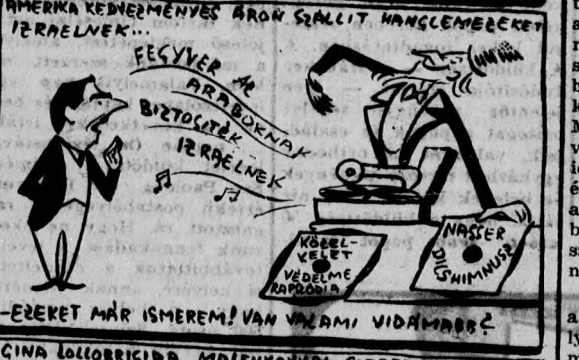 AMERIKA KEDVEZMÉNYES ÁRON SZÁLLIT HANGLEMEZEKET
IZRAELNEK...
FEGYVER AZ
ARABOKNAK
BIZTOSITÉK
IZRAELNEK
KÖZEL-
KELET
VÉDELME
RAPZÓDIA
NASSER
DICSHIMNUSZ
-EZEKET MÁR ISMEREM! VAN VALAMI VIDÁMABB?
GINA LOLLOBRIGIDA